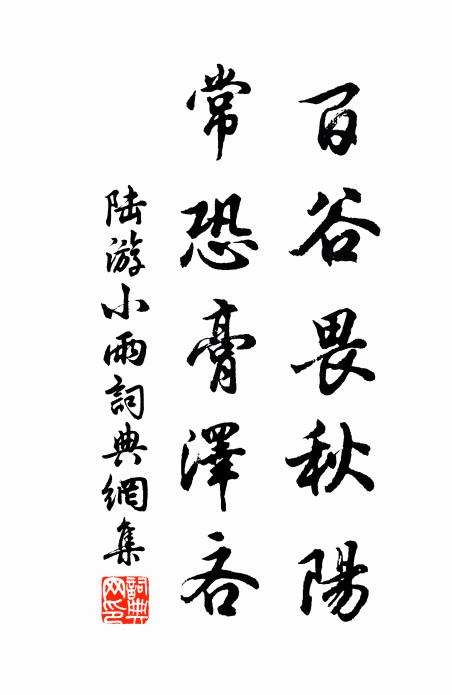 百谷畏秋陽
常恐膏澤吝
陆游小雨詞典網集
詞典網印